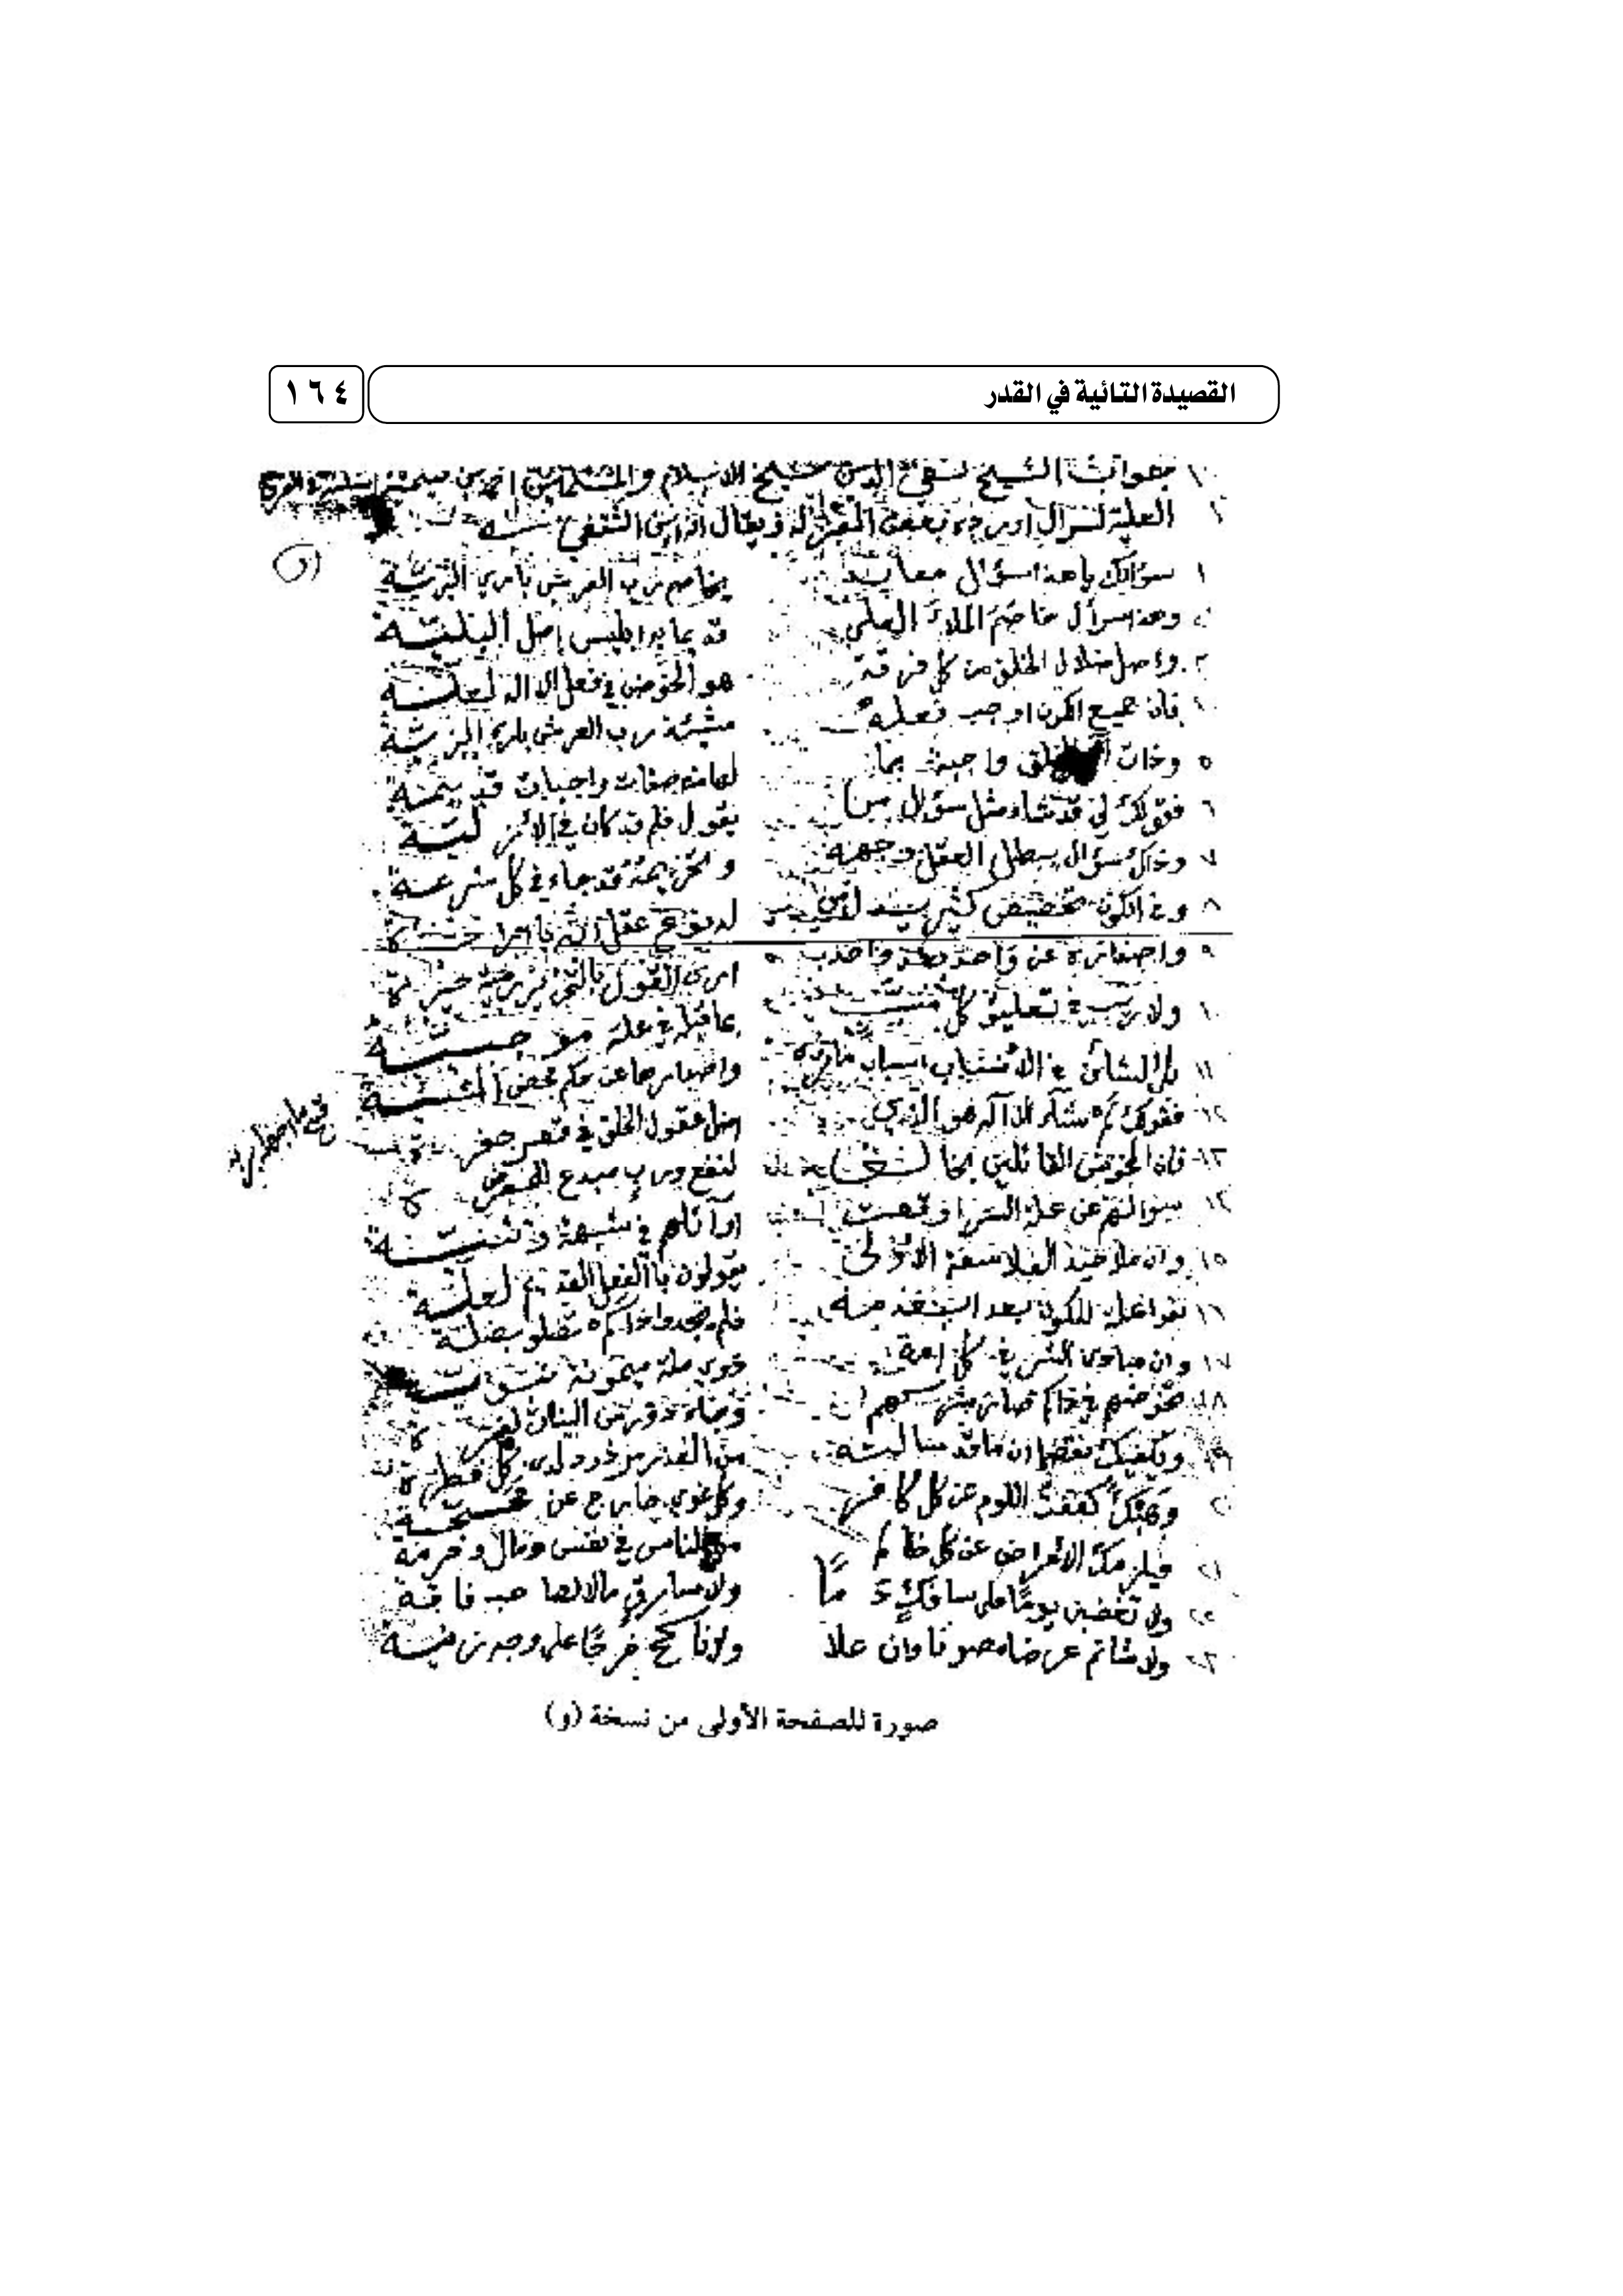 القصيدة التائية في القدر
١٦٤
جواب الشيخ تقي الدين شيخ الاسلام والمسلمين احمد بن تيمية
لسؤال اورده بعض
(و)
١ سؤالك يا هذا سؤال معاند يخاصم رب العرش باري البرية
وهذا سؤال خاصم الملأ العلى قديما به ابليس اصل البلية
٣ واصل ضلال الخلق من كل فرقة هو الخوض في فعل الاله لعلة
فان جميع الكون اوجب فعله مشيئة رب العرش باري البرية
٥ وذات الخلق واجبة بما لها من صفات واجبات قديمة
٦ فقولك لم قد شاء مثل سؤال من يقول فلم قد كان في الأزلية
٧ وذاك سؤال يبطل العقل وجهه وتحريمه قد جاء في كل شرعة
٨ وفي الكون تخصيص كثير يدل من له نوع عقل انه بارادة
٩ واصداره عن واحد بعد واحد ارى القول بالتجويز رمية حيرة
١٠ ولا ريب في تعليق كل مسبب بما قبله في علة موجبية
١١ بل الشأن في الاسباب اسباب ما ترى واصدارها عن حكم محض المشيئة
١٢ فقولك لم شاء الاله هو الذي اضل عقول الخلق في قعر حفرة
١٣ فان المجوس القائلين بخالق لنفع ورب مبدع للمضرة
١٤ سؤالهم عن علة الشر اوقعت اوائلهم في شبهة
١٥ وان ملاحيد الفلاسفة الأولى يقولون بالفعل القديم لعلة
١٦ بغوا علة للكون بعد انعدامه فلم يجدوا ذاكم فضلوا بضلة
١٧ وان مبادي الشر في كل امة ذوي ملة ميمونة نبوية
١٨ بخوضهم في ذاكم صار شركهم وجاء دروس البينات لفترة
١٩ ويكفيك نقضا ان ما قد سالته من العذر مردود لدى كل فطرة
٢٠ وهبك كففت اللوم عن كل كافر وكل غوي خارج عن محجة
٢١ فيلزمك الاعراض عن كل ظالم من الناس في نفس ومال وحرمة
٢٢ ولا تغضبن يوما على سافك دما ولا سارق مالا لصاحب فاقة
٢٣ ولا شاتم عرضا مصونا وان علا ولا ناكح فرجا على وجه زنية
صورة للصفحة الأولى من نسخة (و)